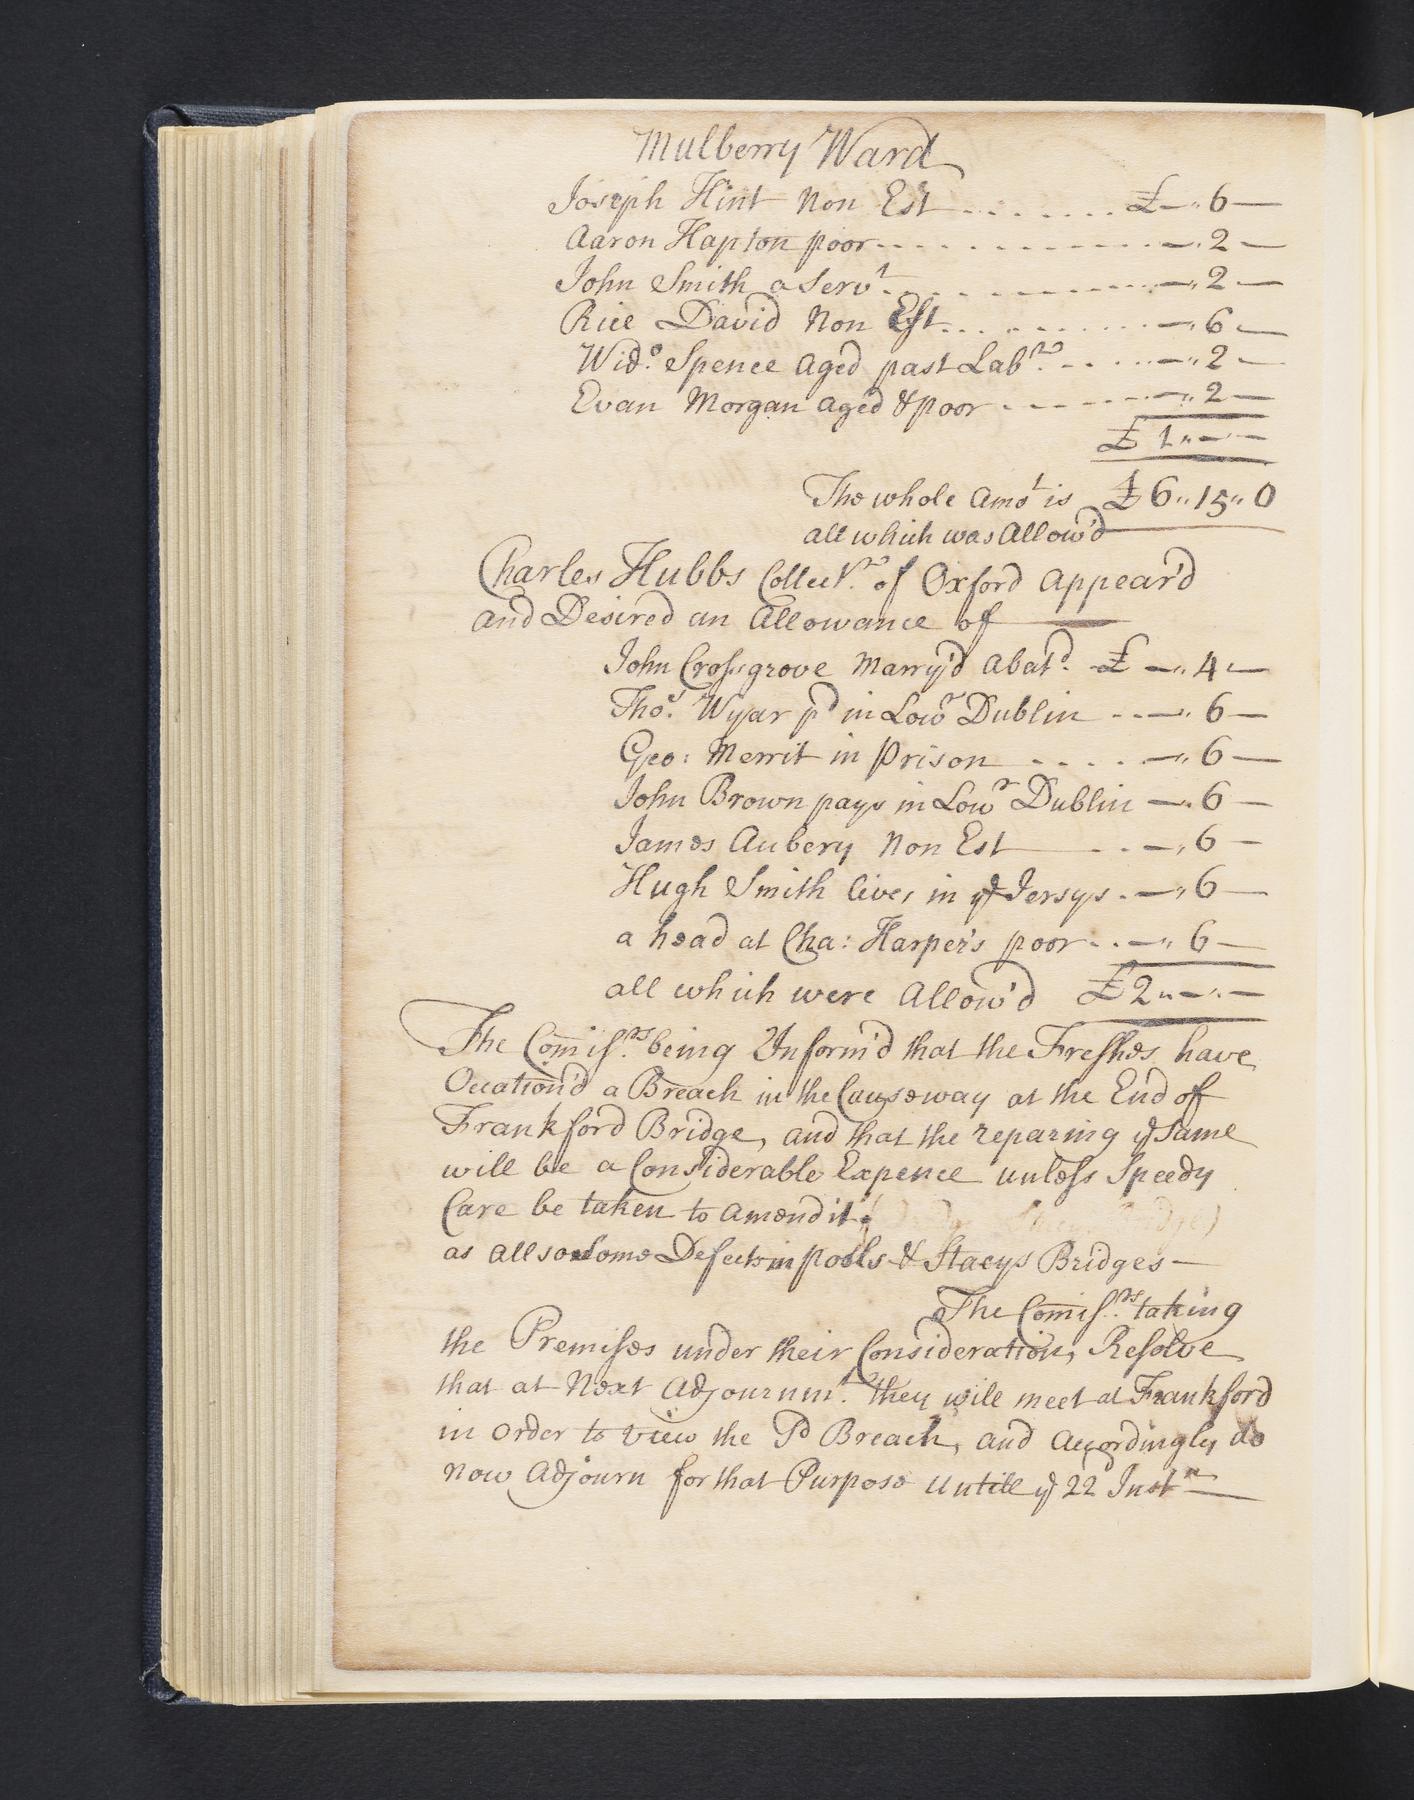 Mulberry Ward
Joseph Hint Non Est ........ £—„6—
Aaron Hapton poor - - - - - —„2—
John Smith a Servt. - - - - - —„2—
Rice David Non Est ... - - - - —„6—
Wido. Spence aged past Labro. - - - —„2—
Evan Morgan aged & poor - - - - —„2—
£1„—„—
The whole amot is £6„15„0
all which was Allow'd
Charles Hubbs Collectro. of Oxford appear'd
and Desired an Allowance of
John Crossgrove Marry'd abatd. £—„4—
Thos. Wyar pd in Lowr Dublin - - —„6—
Geo: Merrit in Prison - - - - —„6—
John Brown pays in Lowr Dublin —„6—
James Aubery Non Est - - —„6—
Hugh Smith lives in ye Jersys . —„6—
a head at Cha: Harper's poor - - —„6—
all which were Allow'd £2„—„—
The Comissrs. being Inform'd that the Freshes have
Ocation'd a Breach in the Causeway at the End of
Frankford Bridge, and that the reparing ye Same
will be a Considerable Expence unless Speedy
Care be taken to amend it
as allso some Defects in pools & Stacys Bridges —
The Comissrs. taking
the Premises under their Consideration, Resolve
that at Next Adjournmt. they will meet at Frankford
in order to view the Sd Breach, and accordingly do
now adjourn for that Purpose untill ye 22 Instn